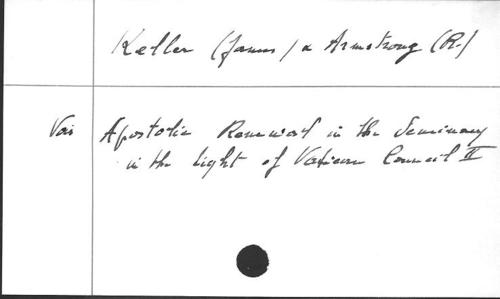 Keller (James) & Armstrong (R.)
Voir Apostolic Renewal in the Seminary
in the light of Vatican Council II